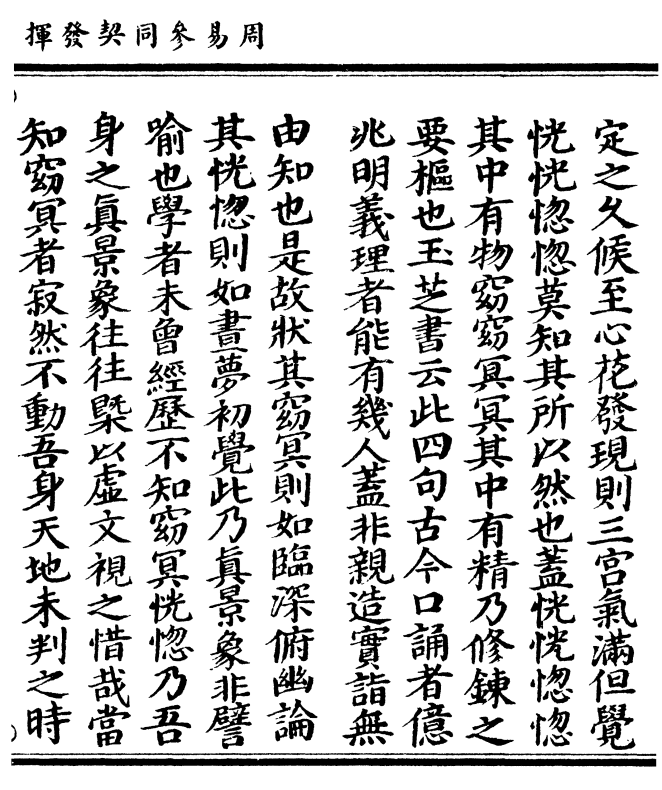 周易參同契發揮
定之久候至心花發現則三宮氣滿但覺
恍恍惚惚莫知其所以然也蓋恍恍惚惚
其中有物窈窈冥冥其中有精乃修鍊之
要樞也玉芝書云此四句古今口誦者億
兆明義理者能有幾人蓋非親造實詣無
由知也是故狀其窈冥則如臨深俯幽論
其恍惚則如晝夢初覺此乃眞景象非譬
喻也學者未曾經歷不知窈冥恍惚乃吾
身之眞景象往往槩以虛文視之惜哉當
知窈冥者寂然不動吾身天地未判之時